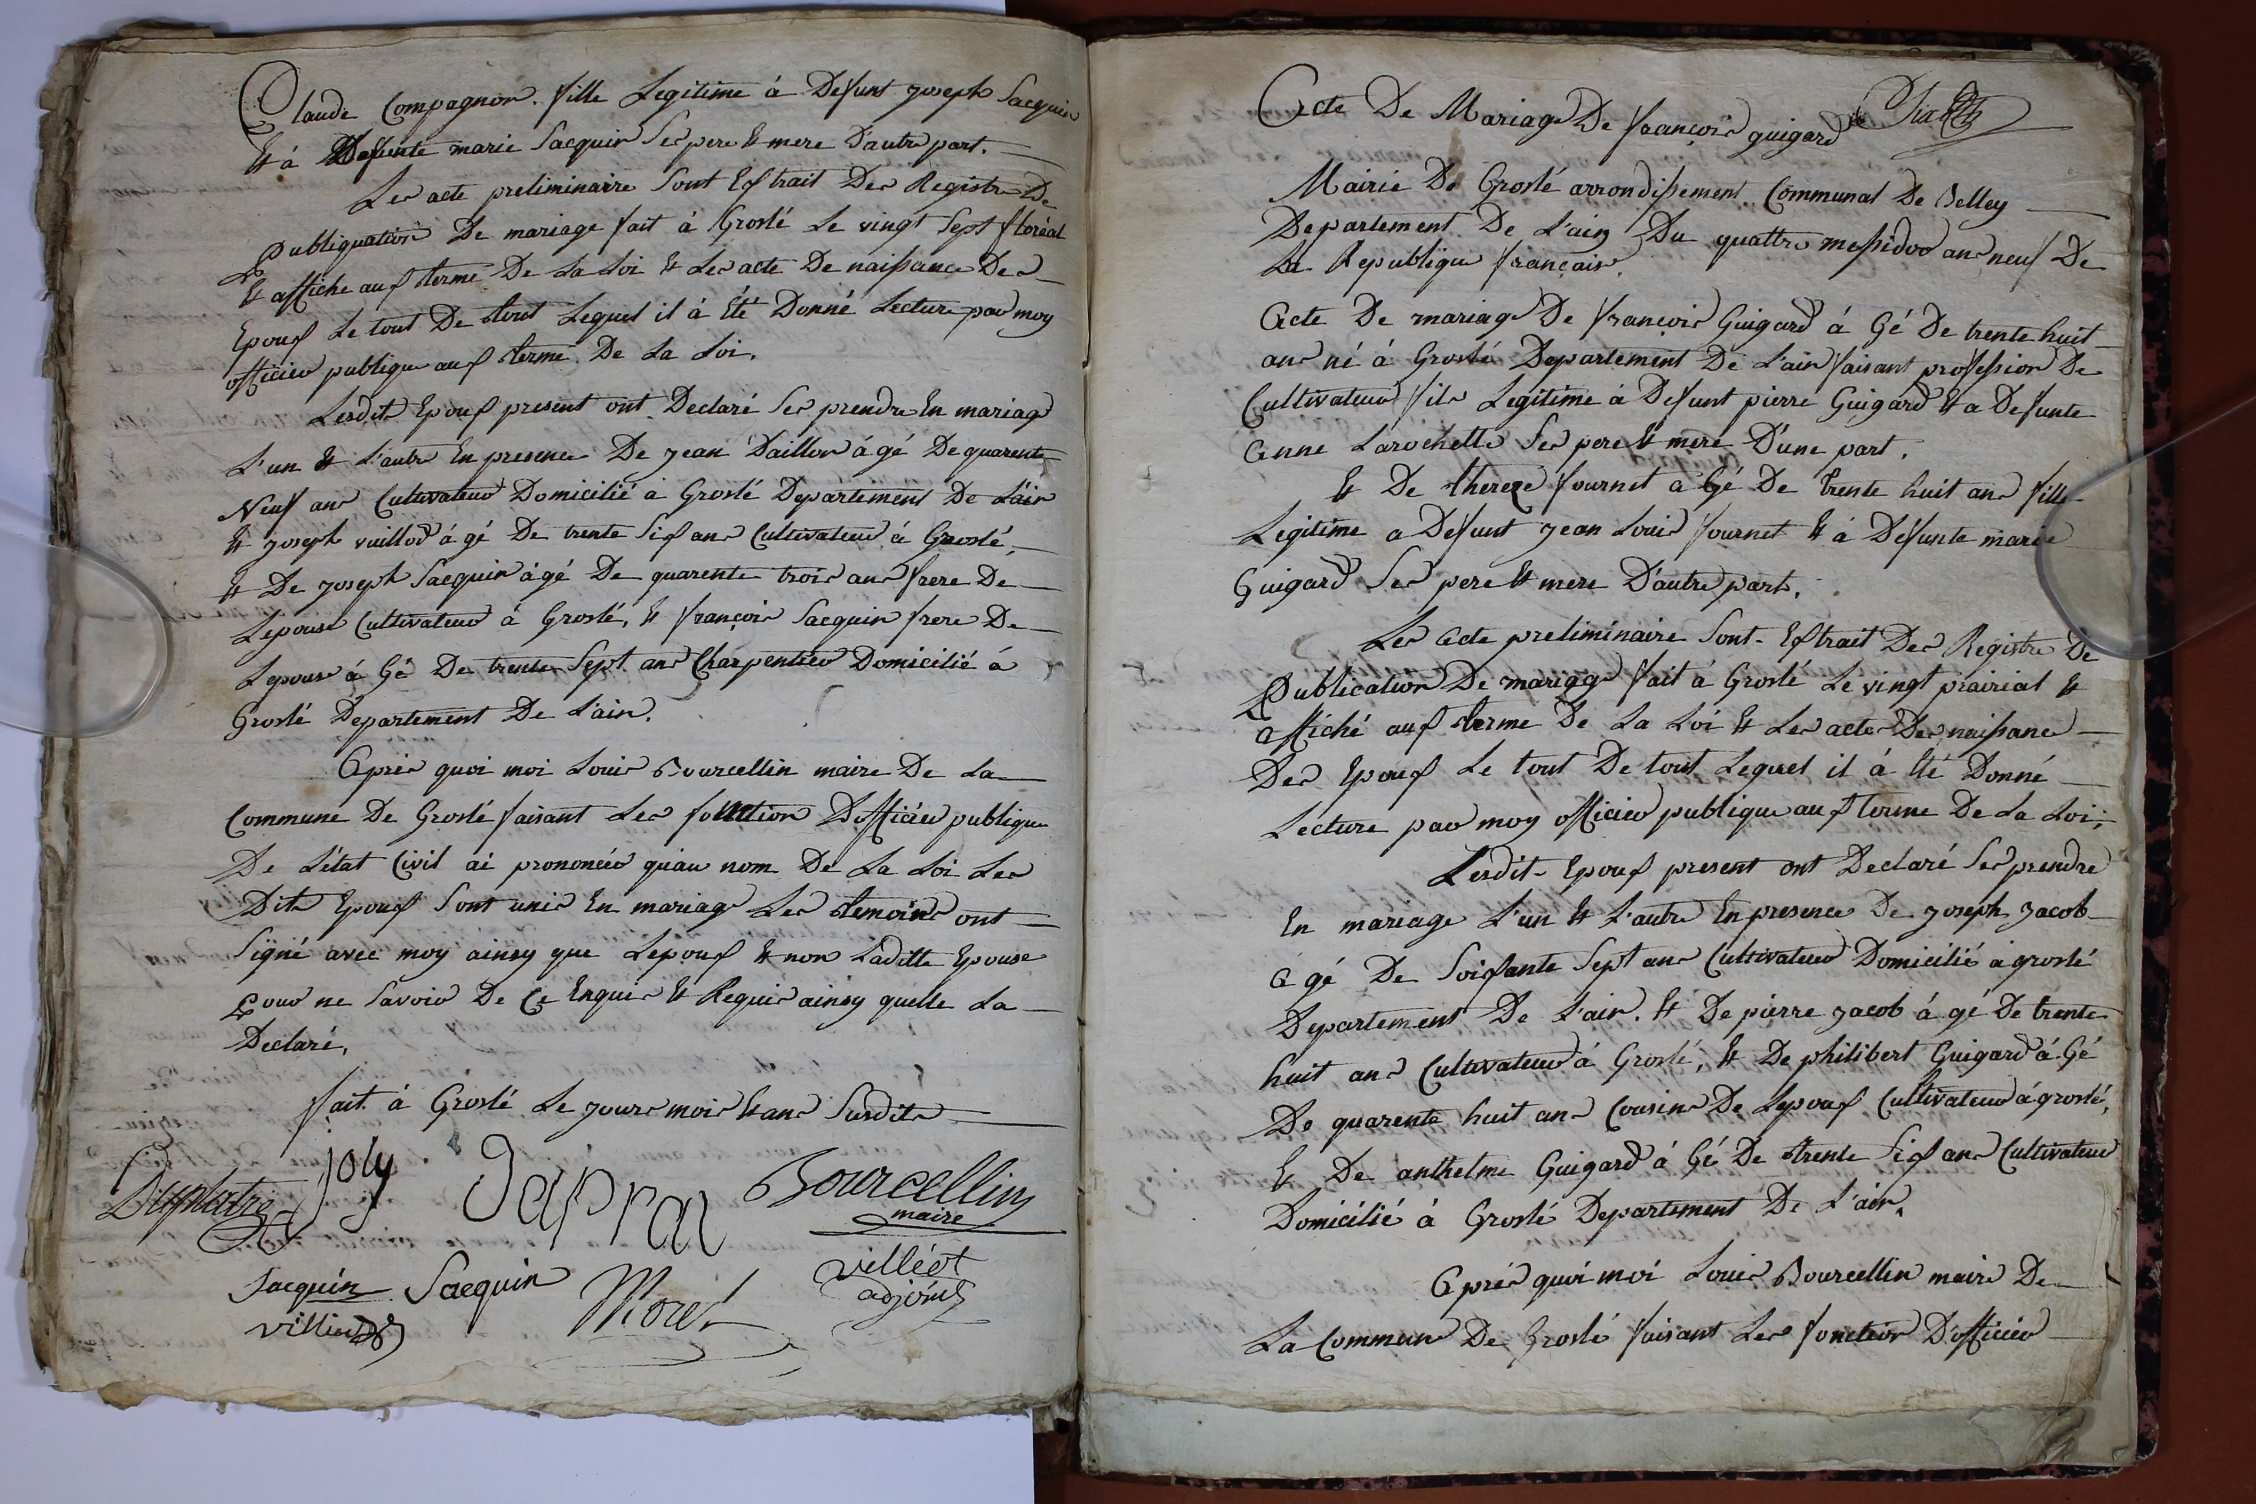 Claude Compagnon. fille Legitime à Defunt joseph Sacquin
Et à Defunte marie Sacquin Ses pere Et mere D'autre part.
Les acte preliminaire Sont Extrait Des Registre De
Publiquation De mariage fait à Groslé Le vingt Sept floréal
Et affiche aux terme De La Loi Et Les acte De naissance Des
Epoux Le tout De tout Lequel il à Été Donné Lecture par moy
officier publique aux terme De La Loi.
Lesdits Epoux present ont Declaré Ses prendre En mariage
L'un Et L'autre En presence De jean Daillon à gé De quarente
Neuf ans Cultivateur Domicilié à Groslé Departement De L'ain
Et joseph vuillod à gé De trente Six ans Cultivateur à Groslé,
Et De joseph Sacquin àgé De quarente trois ans frere De
Lepouse Cultivateur à Groslé, Et françois Sacquin frere De
Lepouse à Gé De trente Sept ans Charpentier Domicilié à
Groslé Departement De L'ain.
Après quoi moi Louis Bourcellin maire De La
Commune De Groslé faisant Les fonction D'officier publique
De L'état Civil ai prononcée qu'au nom De La Loi Les
Dits Epoux Sont unis En mariage Les temoins ont
Signé avec moy ainsy que Lepoux Et non Laditte Epouse
pour ne Savoir De Ce Enquis Et Requis ainsy quelle La
Declaré.
fait à Groslé Le jours mois Et ans Susdits
joly Bourcellin
maire
Sacquin Sacquin Morel
adjoint
Acte De Mariage De françois guigard
Mairie De Groslé arrondissement Communal De Belley
Departement De L'ain Du quattre messidor an neuf De
La Republique français.
Acte De mariage De françois Guigard à Gé De trente huit
ans né à Groslé Departement De L'ain faisant profession De
Cultivateur fils Legitime à Defunt pierre Guigard Et a Defunte
Anne Larochette Ses pere Et mere D'une part.
Et De thereze fournet a Gé De trente huit ans fille
Legitime a Defunt jean Louis fournet Et à Defunte marie
Guigard Ses pere Et mere D'autre part.
Les Acte preliminaire Sont Extrait Des Registre De
Publication De mariage fait à Groslé Le vingt prairial Et
affiché aux terme De La Loi Et Les actes De naissance
Des Epoux Le tout De tout Lequel il à Été Donné
Lecture par moy officier publique aux terme De La Loi,
Lesdit Epoux present ont Declaré Ses prendre
En mariage L'un Et L'autre En presence De joseph jacob
a gé De Soixante Sept ans Cultivateur Domicilié à groslé
Departement De L'ain. Et De pierre jacob à gé De trente
huit ans Cultivateur à Groslé, Et De philibert Guigard à Gé
De quarente huit ans Cousins De Lepoux Cultivateur à groslé,
Et De anthelme Guigard à Gé De trente Six ans Cultivateur
Domicilié à Groslé Departement De L'ain.
Après quoi moi Louis Bourcellin maire De
La Commune De Groslé faisant Les fonction D'officier